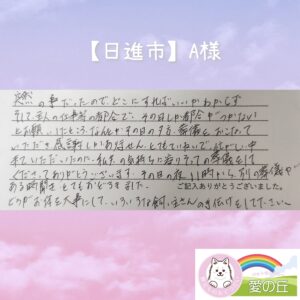 【日進市】A様
突然の事だったので、どこにすればいいかわからず
そして主人の仕事等の都合で、その日しか都合がつかない
とお願いしたところ、なんとかその日のうち、葬儀をおこなって
いただき感謝しかありません。とてもていねいで、
来ていただいたのに、私共の気持ちに寄りそっての葬儀をして
くださってありがとうございます。その日の夜11時から、別の葬儀が
ある時聞き、とてもおどろきました。
ご記入ありがとうございました。
どうかお体を大事にして、いろいろな飼い主さんのお手伝いをして下さい。
愛の丘